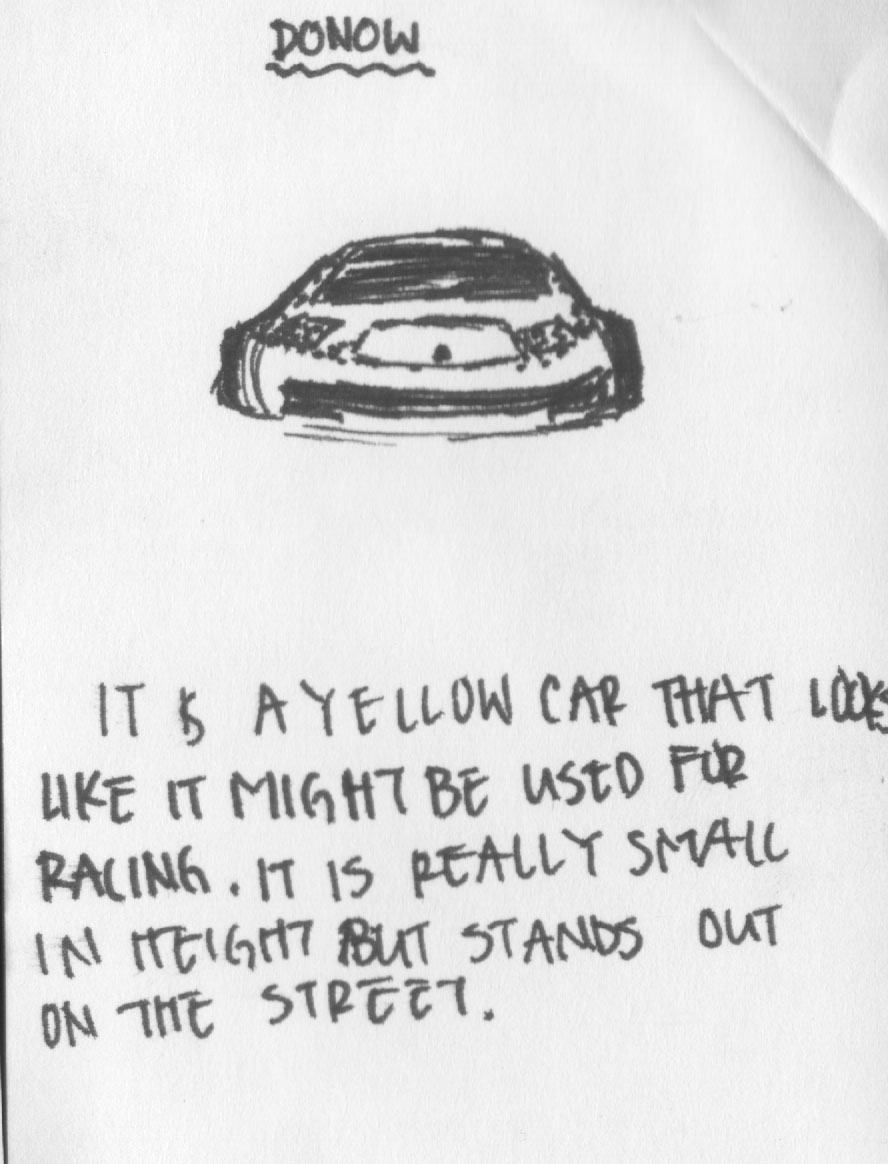 DONOW
IT IS A YELLOW CAR THAT LOOKS
LIKE IT MIGHT BE USED FOR
RACING. IT IS REALLY SMALL
IN HEIGHT BUT STANDS OUT
ON THE STREET.